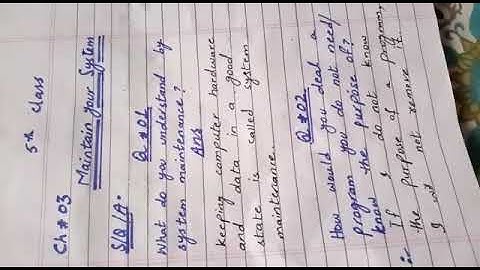 5th class
Ch # 03
Maintain your System
S/Q/A.
Q # 01
What do you understand by
system maintenance?
Ans
keeping computer hardware
and data in a good
state is called system
maintenance.
Q # 02
How would you deal a
program you do not need/
know the purpose of?
If I do not know
∴ the purpose of a program,
I will not remove it